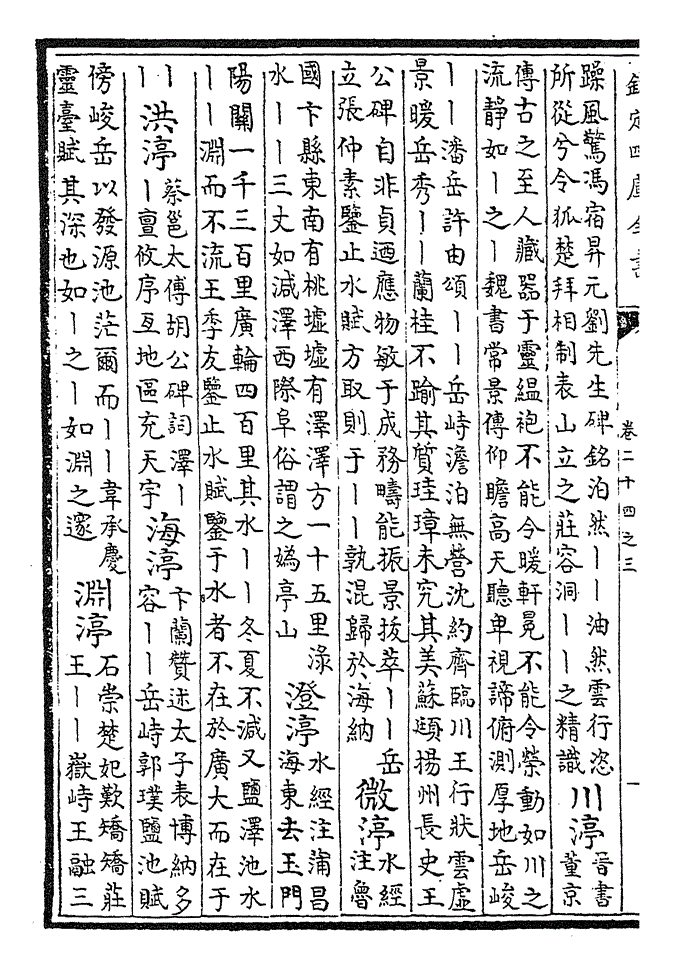 欽定四庫全書 卷二十四之三
躁風驚馮宿昇元劉先生碑銘泊然丨丨油然雲行恣
所從兮令狐楚拜相制表山立之莊容洞丨丨之精識
川渟
晉書
董京
傳古之至人藏器于靈緼袍不能令暖軒冕不能令榮動如川之
流静如丨之丨魏書常景傳仰瞻高天聽卑視諦俯測厚地岳峻
丨丨潘岳許由頌丨丨岳峙澹泊無營沈約齊臨川王行狀雲虛
景暖岳秀丨丨蘭桂不踰其質珪璋未究其美蘇頲揚州長史王
公碑自非貞迺應物敏于成務疇能振景拔萃丨丨岳
立張仲素鑒止水賦方取則于丨丨孰混歸於海納
微渟
水經
注魯
國卞縣東南有桃墟墟有澤澤方一十五里淥
水丨丨三丈如減澤西際阜俗謂之媯亭山
澄渟
水經注蒲昌
海東去玉門
陽關一千三百里廣輪四百里其水丨丨冬夏不減又鹽澤池水
丨丨淵而不流王季友鑒止水賦鑒于水者不在於廣大而在于
丨
丨
洪渟
蔡邕太傅胡公碑詞澤丨
丨亶攸序亙地區充天宇
海渟
卞蘭贊述太子表博納多
容丨丨岳峙郭璞鹽池賦
傍峻岳以發源池茫爾而丨丨韋承慶
靈臺賦其深也如丨之丨如淵之邃
淵渟
石崇楚妃歎矯矯莊
王丨丨嶽峙王融三